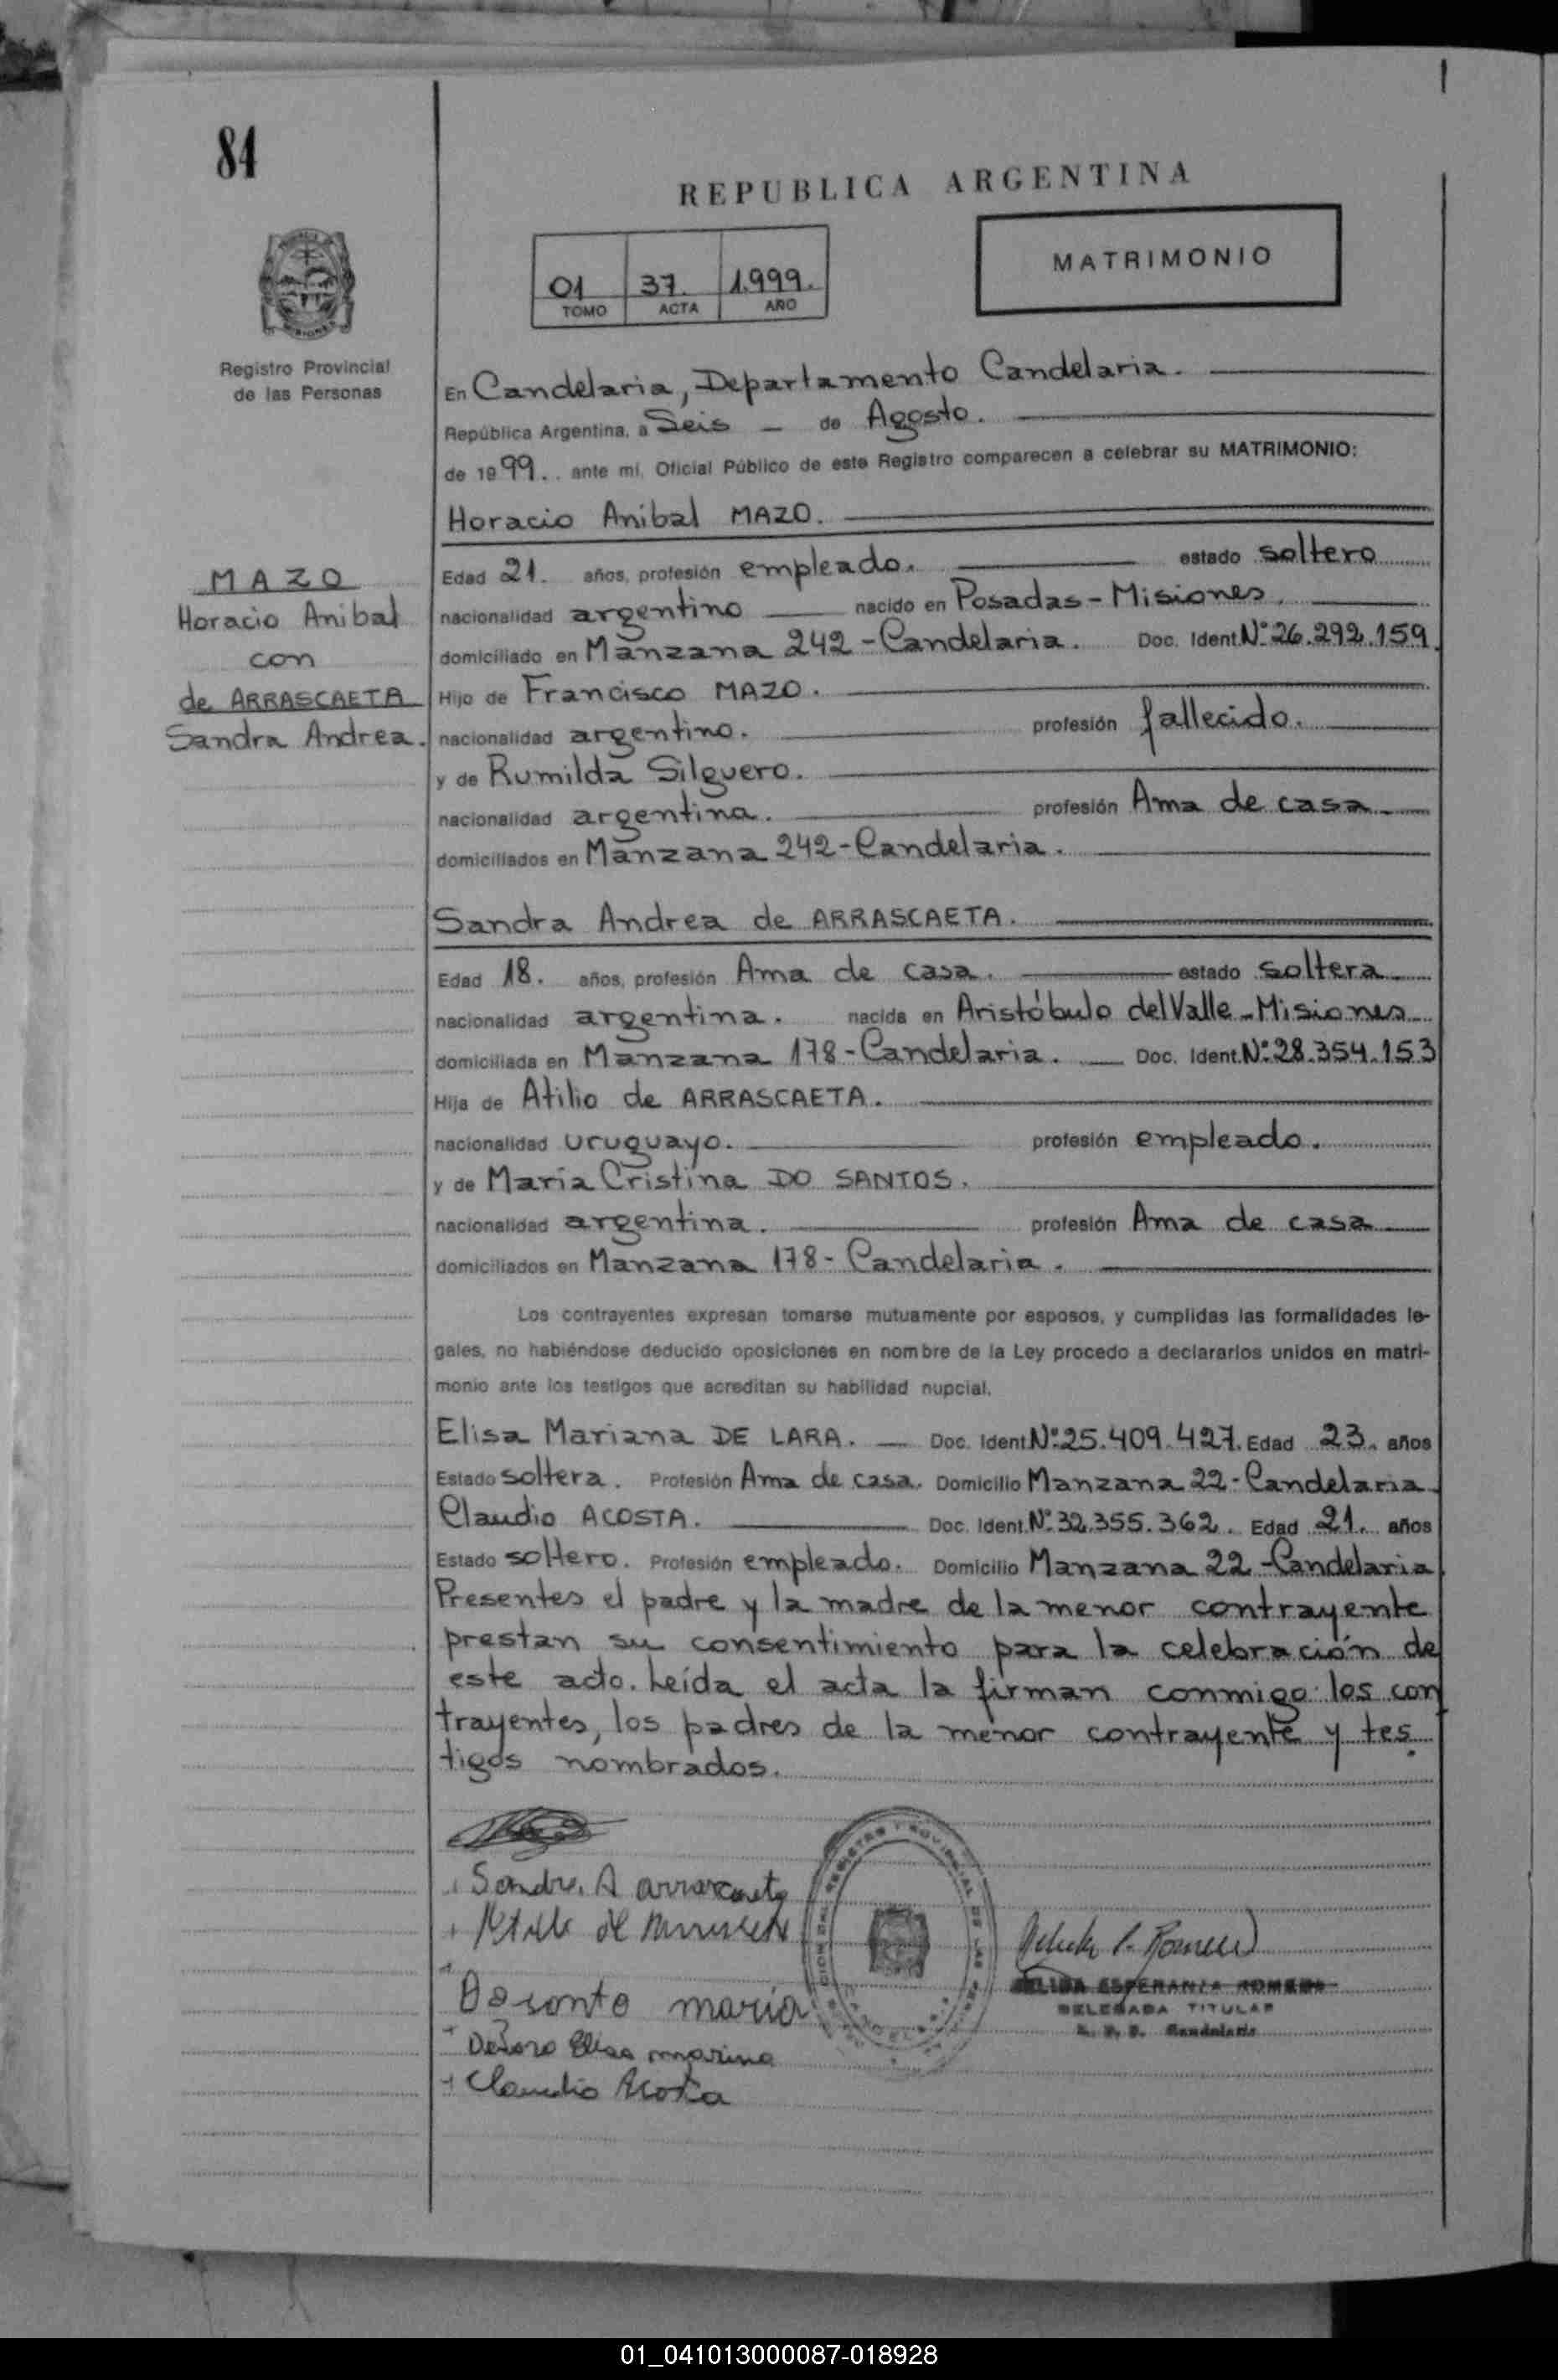 84
REPUBLICA ARGENTINA
MATRIMONIO
01 37. 1.999.
TOMO ACTA AÑO
Registro Provincial
de las Personas
En Candelaria, Departamento Candelaria.
República Argentina, a Seis - de Agosto.
de 1999.. ante mi, Oficial Público de este Registro comparecen a celebrar su MATRIMONIO:
Horacio Anibal MAZO.
MAZO
Horacio Anibal
con
de ARRASCAETA
Sandra Andrea.
Edad 21. años, profesión empleado. estado soltero
nacionalidad argentino nacido en Posadas - Misiones.
domiciliado en Manzana 242 - Candelaria. Doc. Ident. Nº 26.292.159.
Hijo de Francisco MAZO.
nacionalidad argentino. profesión fallecido.
y de Rumilda Silguero.
nacionalidad argentina. profesión Ama de casa
domiciliados en Manzana 242 - Candelaria.
Sandra Andrea de ARRASCAETA.
Edad 18. años, profesión Ama de casa. estado soltera
nacionalidad argentina. nacida en Aristóbulo del Valle - Misiones
domiciliada en Manzana 178 - Candelaria. Doc. Ident. Nº 28.354.153
Hija de Atilio de ARRASCAETA.
nacionalidad uruguayo. profesión empleado.
y de María Cristina DO SANTOS.
nacionalidad argentina. profesión Ama de casa
domiciliados en Manzana 178 - Candelaria.
Los contrayentes expresan tomarse mutuamente por esposos, y cumplidas las formalidades le-
gales, no habiéndose deducido oposiciones en nombre de la Ley procedo a declararlos unidos en matri-
monio ante los testigos que acreditan su habilidad nupcial.
Elisa Mariana DE LARA. Doc. Ident. Nº 25.409.427. Edad 23. años
Estado soltera. Profesión Ama de casa. Domicilio Manzana 22 - Candelaria.
Claudio ACOSTA. Doc. Ident. Nº 32.355.362. Edad 21. años
Estado soltero. Profesión empleado. Domicilio Manzana 22 - Candelaria.
Presentes el padre y la madre de la menor contrayente
prestan su consentimiento para la celebración de
este acto. Leída el acta la firman conmigo los con
trayentes, los padres de la menor contrayente y tes
tigos nombrados.
Sandra A arrascaeta
maria
Claudio Acosta
ESPERANZA ROMERO
DELEGADA TITULAR
Candelaria
01_041013000087-018928